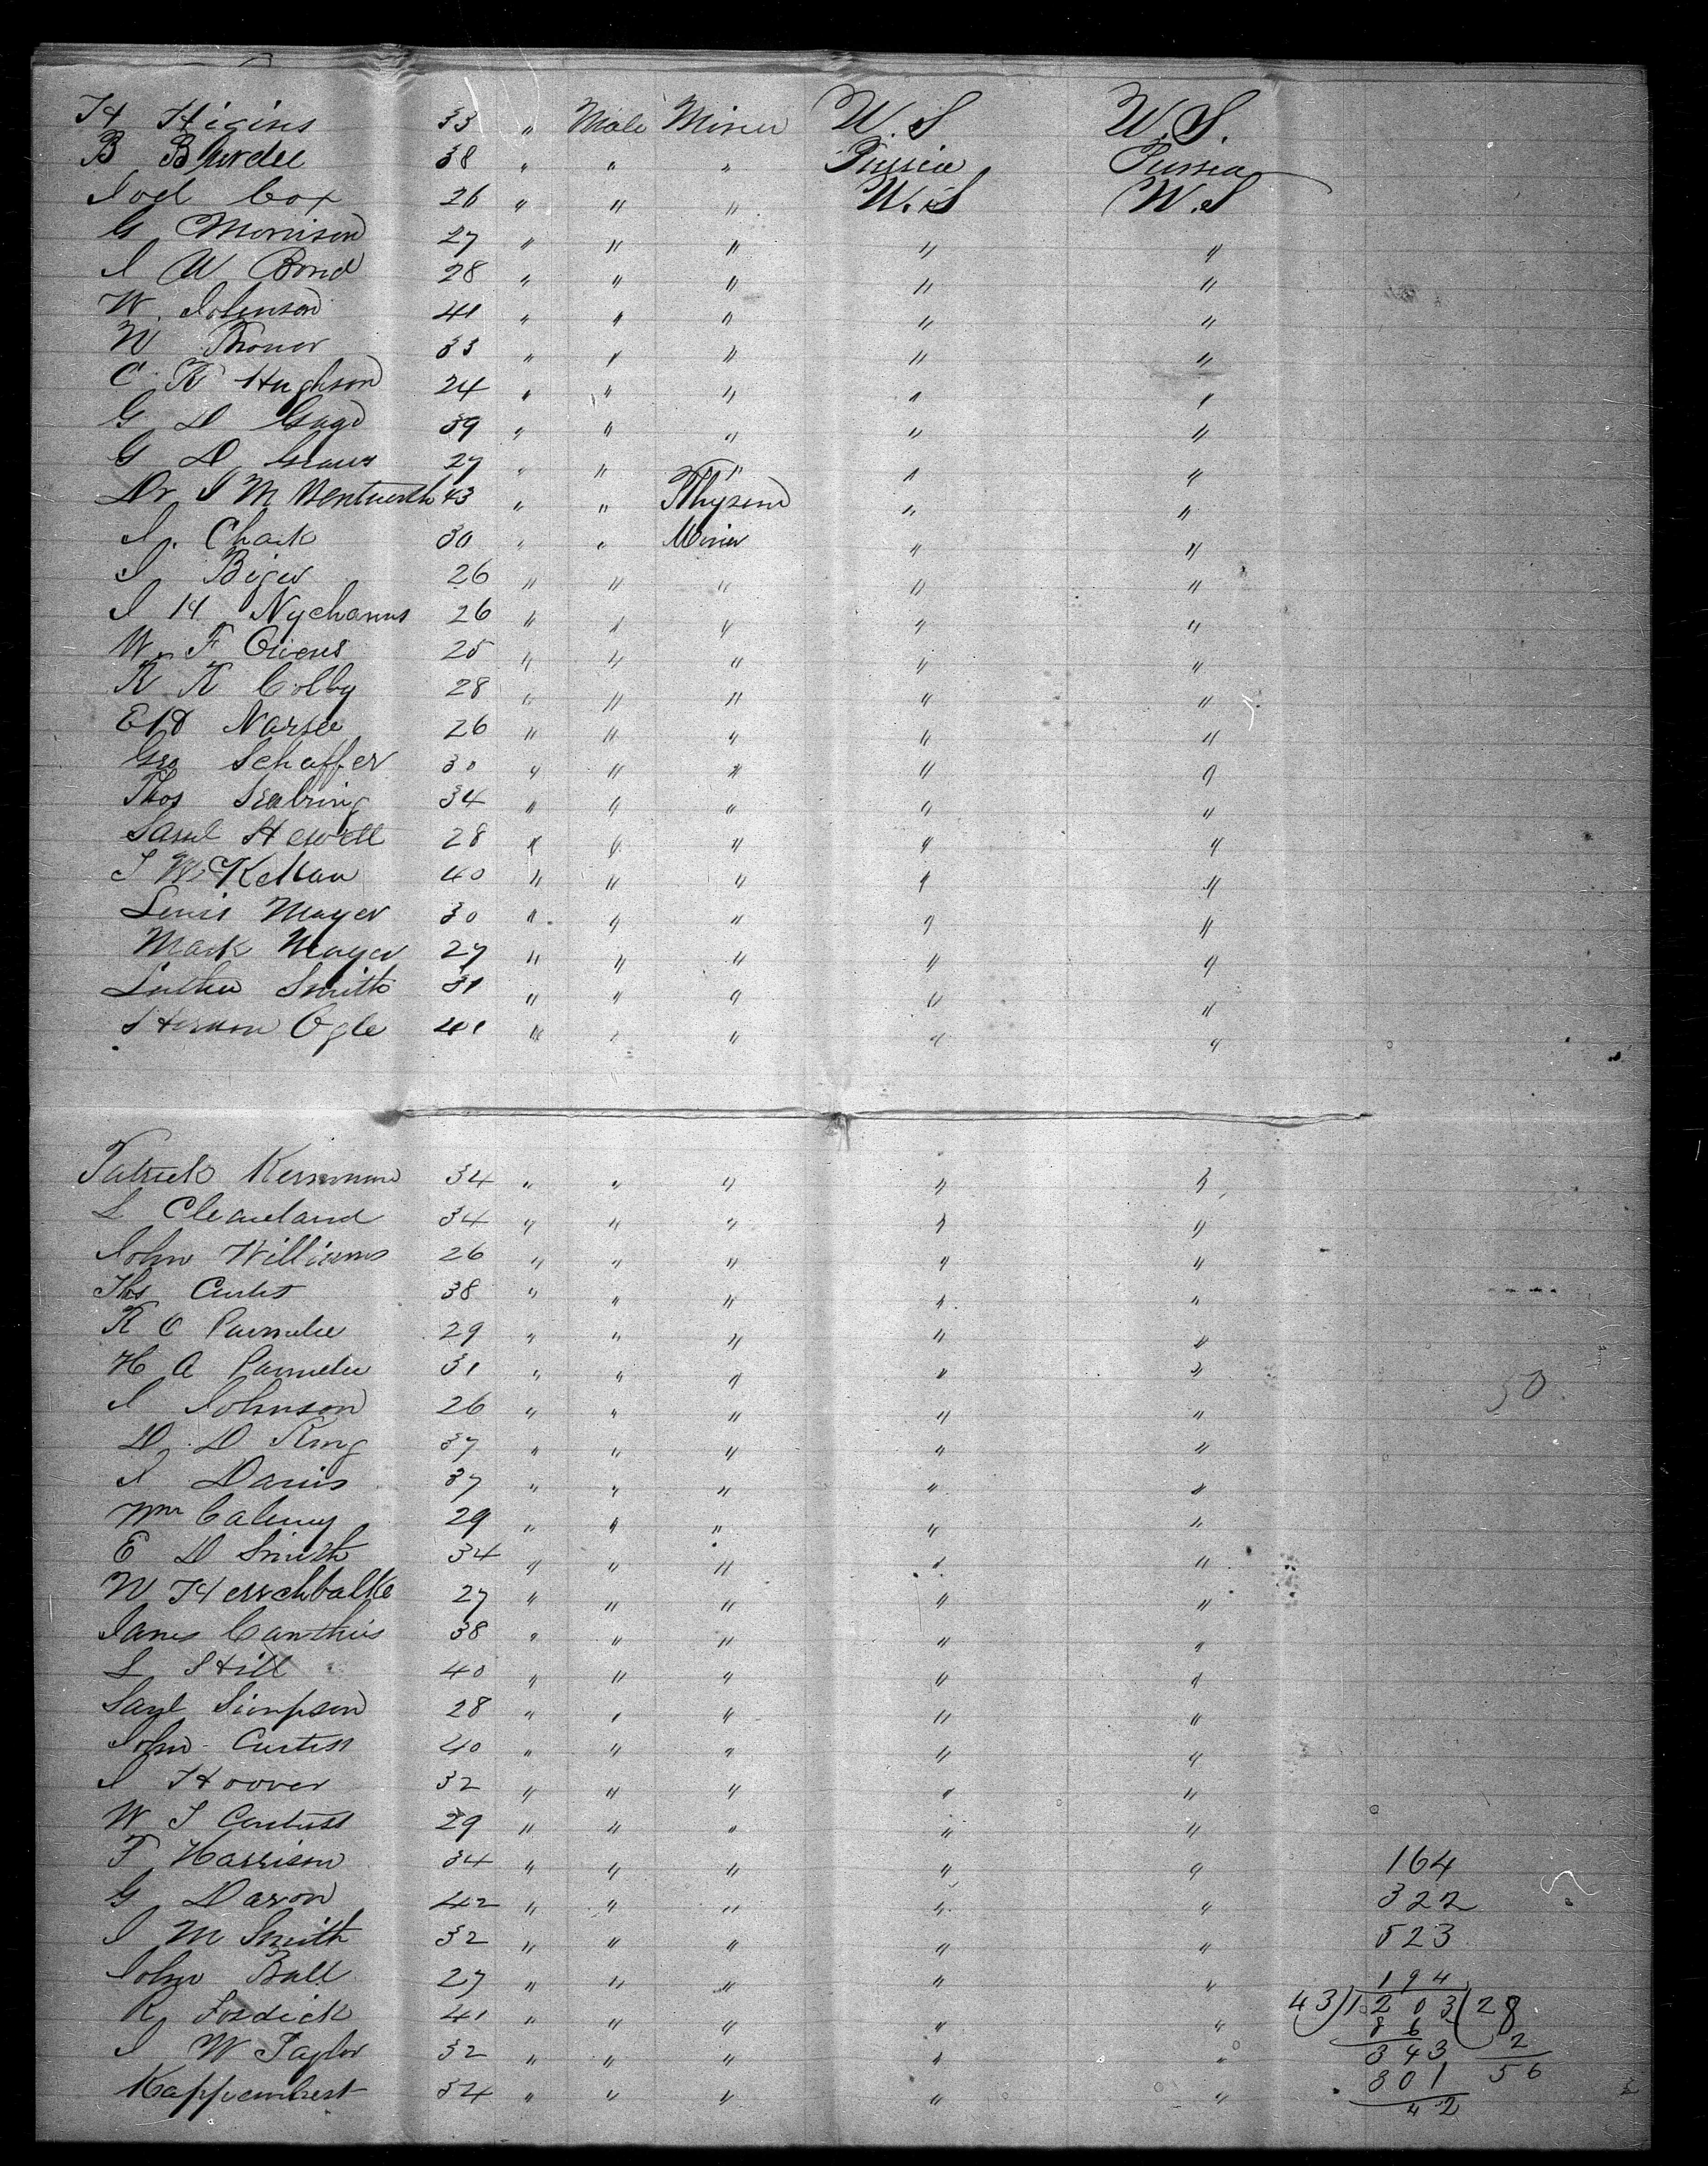 H Higins 33 " Male Miner U.S U.S.
B Burdee 38 " " " Prussia Prussia
Joel Cox 26 " " " U.S U.S
G Morrison 27 " " " " "
J W Bond 28 " " " " "
W. Johnson 41 " " " " "
W 33 " " " " "
C R Hughson 24 " " " " "
G D Gage 39 " " " " "
G D 27 " " " " "
Dr J M Wentworth 43 " " " "
J. Chark 30 " " Miner " "
J Biger 26 " " " " "
J H 26 " " " " "
W. F Owens 25 " " " " "
R R Colby 28 " " " " "
26 " " " " "
Geo Schaffer 30 " " " " "
Thos Seabring 34 " " " " "
Saml Hewett 28 " " " " "
40 " " " " "
Lewis Mayer 30 " " " " "
Mark Mayer 27 " " " " "
Luther Smith 31 " " " " "
Ogle 41 " " " " "
Patrick 34 " " " " "
L Cleaveland 34 " " " " "
John Williams 26 " " " " "
Ths Curtis 38 " " " " "
R C Parmelee 29 " " " " "
H A Parmelee 31 " " " " "
50
J Johnson 26 " " " " "
D. D King 37 " " " " "
J Davis 37 " " " " "
Wm 29 " " " " "
E D Smith 34 " " " " "
W 27 " " " " "
James 38 " " " " "
L Still 40 " " " " "
Saml Simpson 28 " " " " "
John Curtiss 40 " " " " "
J Hoover 32 " " " " "
W S Curtiss 29 " " " " "
F Harrison 34 " " " " " 164
G 42 " " " " " 322
J M Smith 32 " " " " " 523
John Ball 27 " " " " " 194
R Fosdick 41 " " " " " 43)1203(28
86 2
J W Taylor 32 " " " " " 343 56
34 " " " " " 301
42